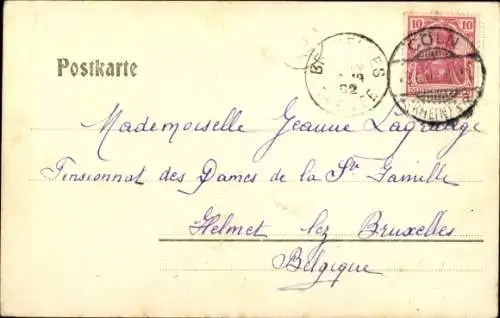 10 10
CÖLN
(RHEIN) 1
BR
ES
Postkarte
Mademoiselle Jeanne Lagrange
Pensionnat des Dames de la Ste Famille
Helmet lez Bruxelles
Belgique